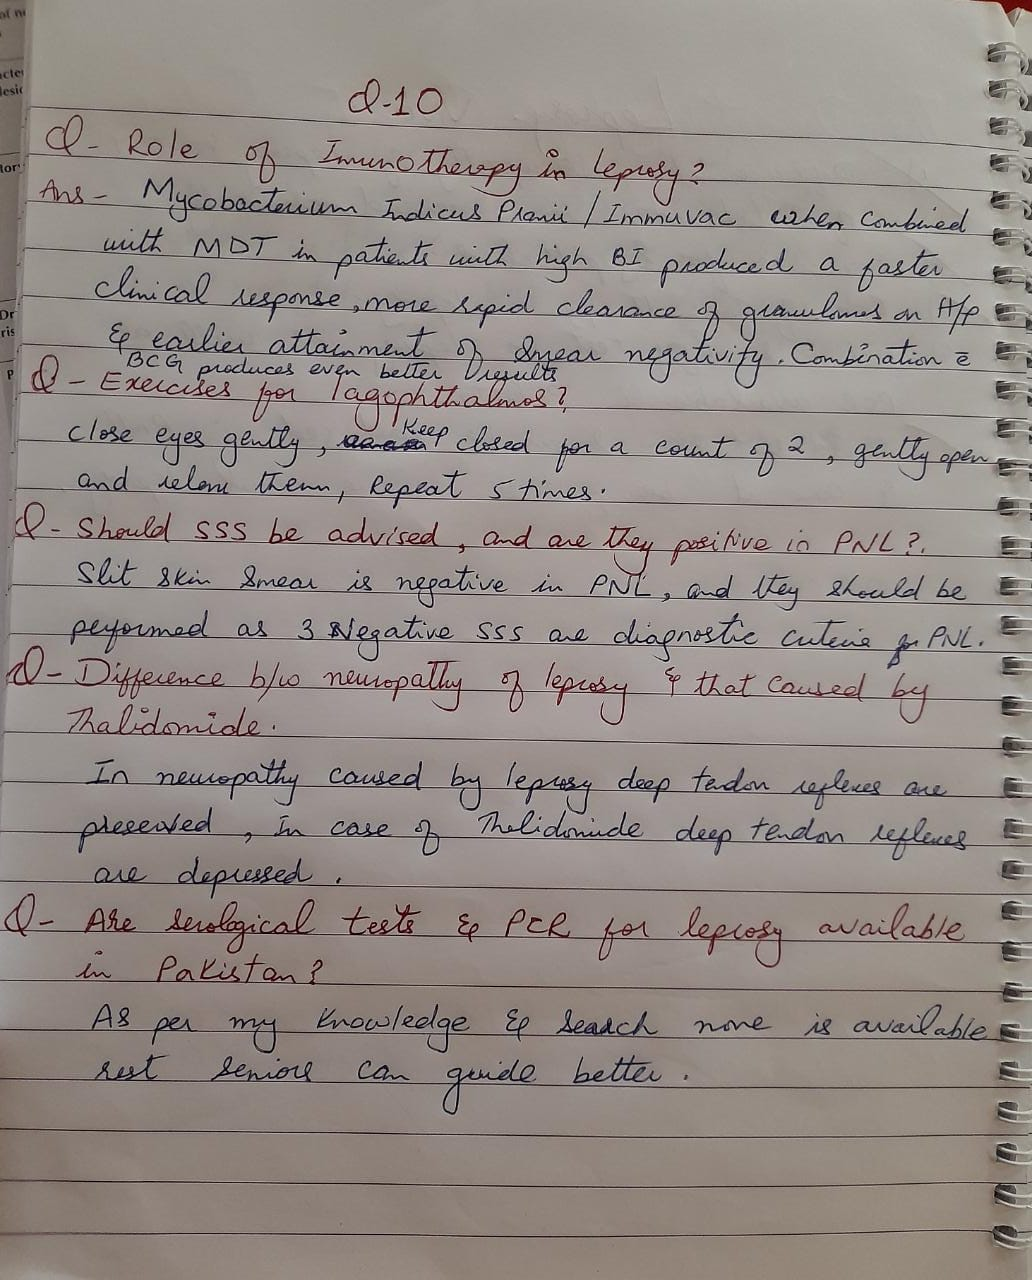 Q-10
Q- Role of Imunotherapy in leprosy?
Ans- Mycobacterium Indicus Pranii / Immuvac when combined
with MDT in patients with high BI produced a faster
clinical response, more rapid clearance of granulomas on H/p
& earlier attainment of smear negativity. Combination c̄
BCG produces even better results
Q- Exercises for lagophthalmos?
Close eyes gently, Keep closed for a count of 2, gently open
and relax them, Repeat 5 times.
Q- Should SSS be advised, and are they positive in PNL?.
Slit skin smear is negative in PNL, and they should be
performed as 3 Negative SSS are diagnostic criteria for PNL.
Q- Difference b/w neuropathy of leprosy & that caused by
Thalidomide.
In neuropathy caused by leprosy deep tendon reflexes are
preserved, In case of Thalidomide deep tendon reflexes
are depressed.
Q- Are serological tests & PCR for leprosy available
in Pakistan?
As per my knowledge & search none is available
rest seniors can guide better.